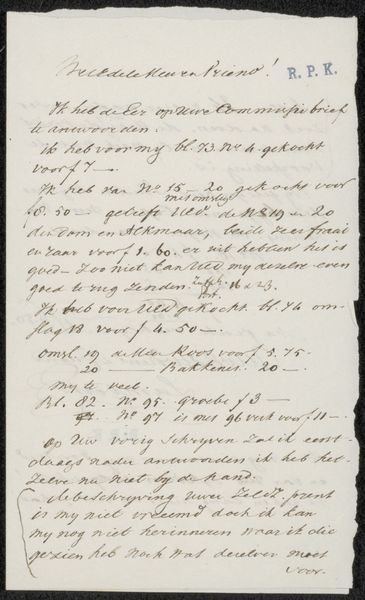 WelEdele Heer en Vriend!
R. P. K.
Ik heb de Eer op Uwe Commissie brief
te antwoorden.
ik heb voor my bl. 73. No 4. gekocht
voor f 7 —.
Ik heb van No 15 — 20 gekocht voor
met omslag
f 8. 50 — gelieft UEd. de No 19 en 20
den Dom en Alkmaar, beide zeer fraai
en zaar voor f 1. 60. er uit hebben het is
goed — zoo niet kan UEd my dezelve even
goed terug zenden. 16 a 23.
Ik heb voor UEd gekocht. bl. 74 om-
slag 18 voor f 4. 50 —.
omsl. 19 de Heer Roos voor f 5. 75.
20 — Bakkenes. 20 —.
my te veel.
Bl. 82. No 95. groebe f 3 —
No 97 is met 96 verk voor f 11 —
op Uw vorig Schryven zal ik eerst-
daags nader antwoorden ik heb het-
zelve nu niet by de hand.
de beschryving uwer prent
is my niet vreemd doch ik kan
my nog niet herinneren waar ik die
gezien heb noch wat dezelver moet
voor.